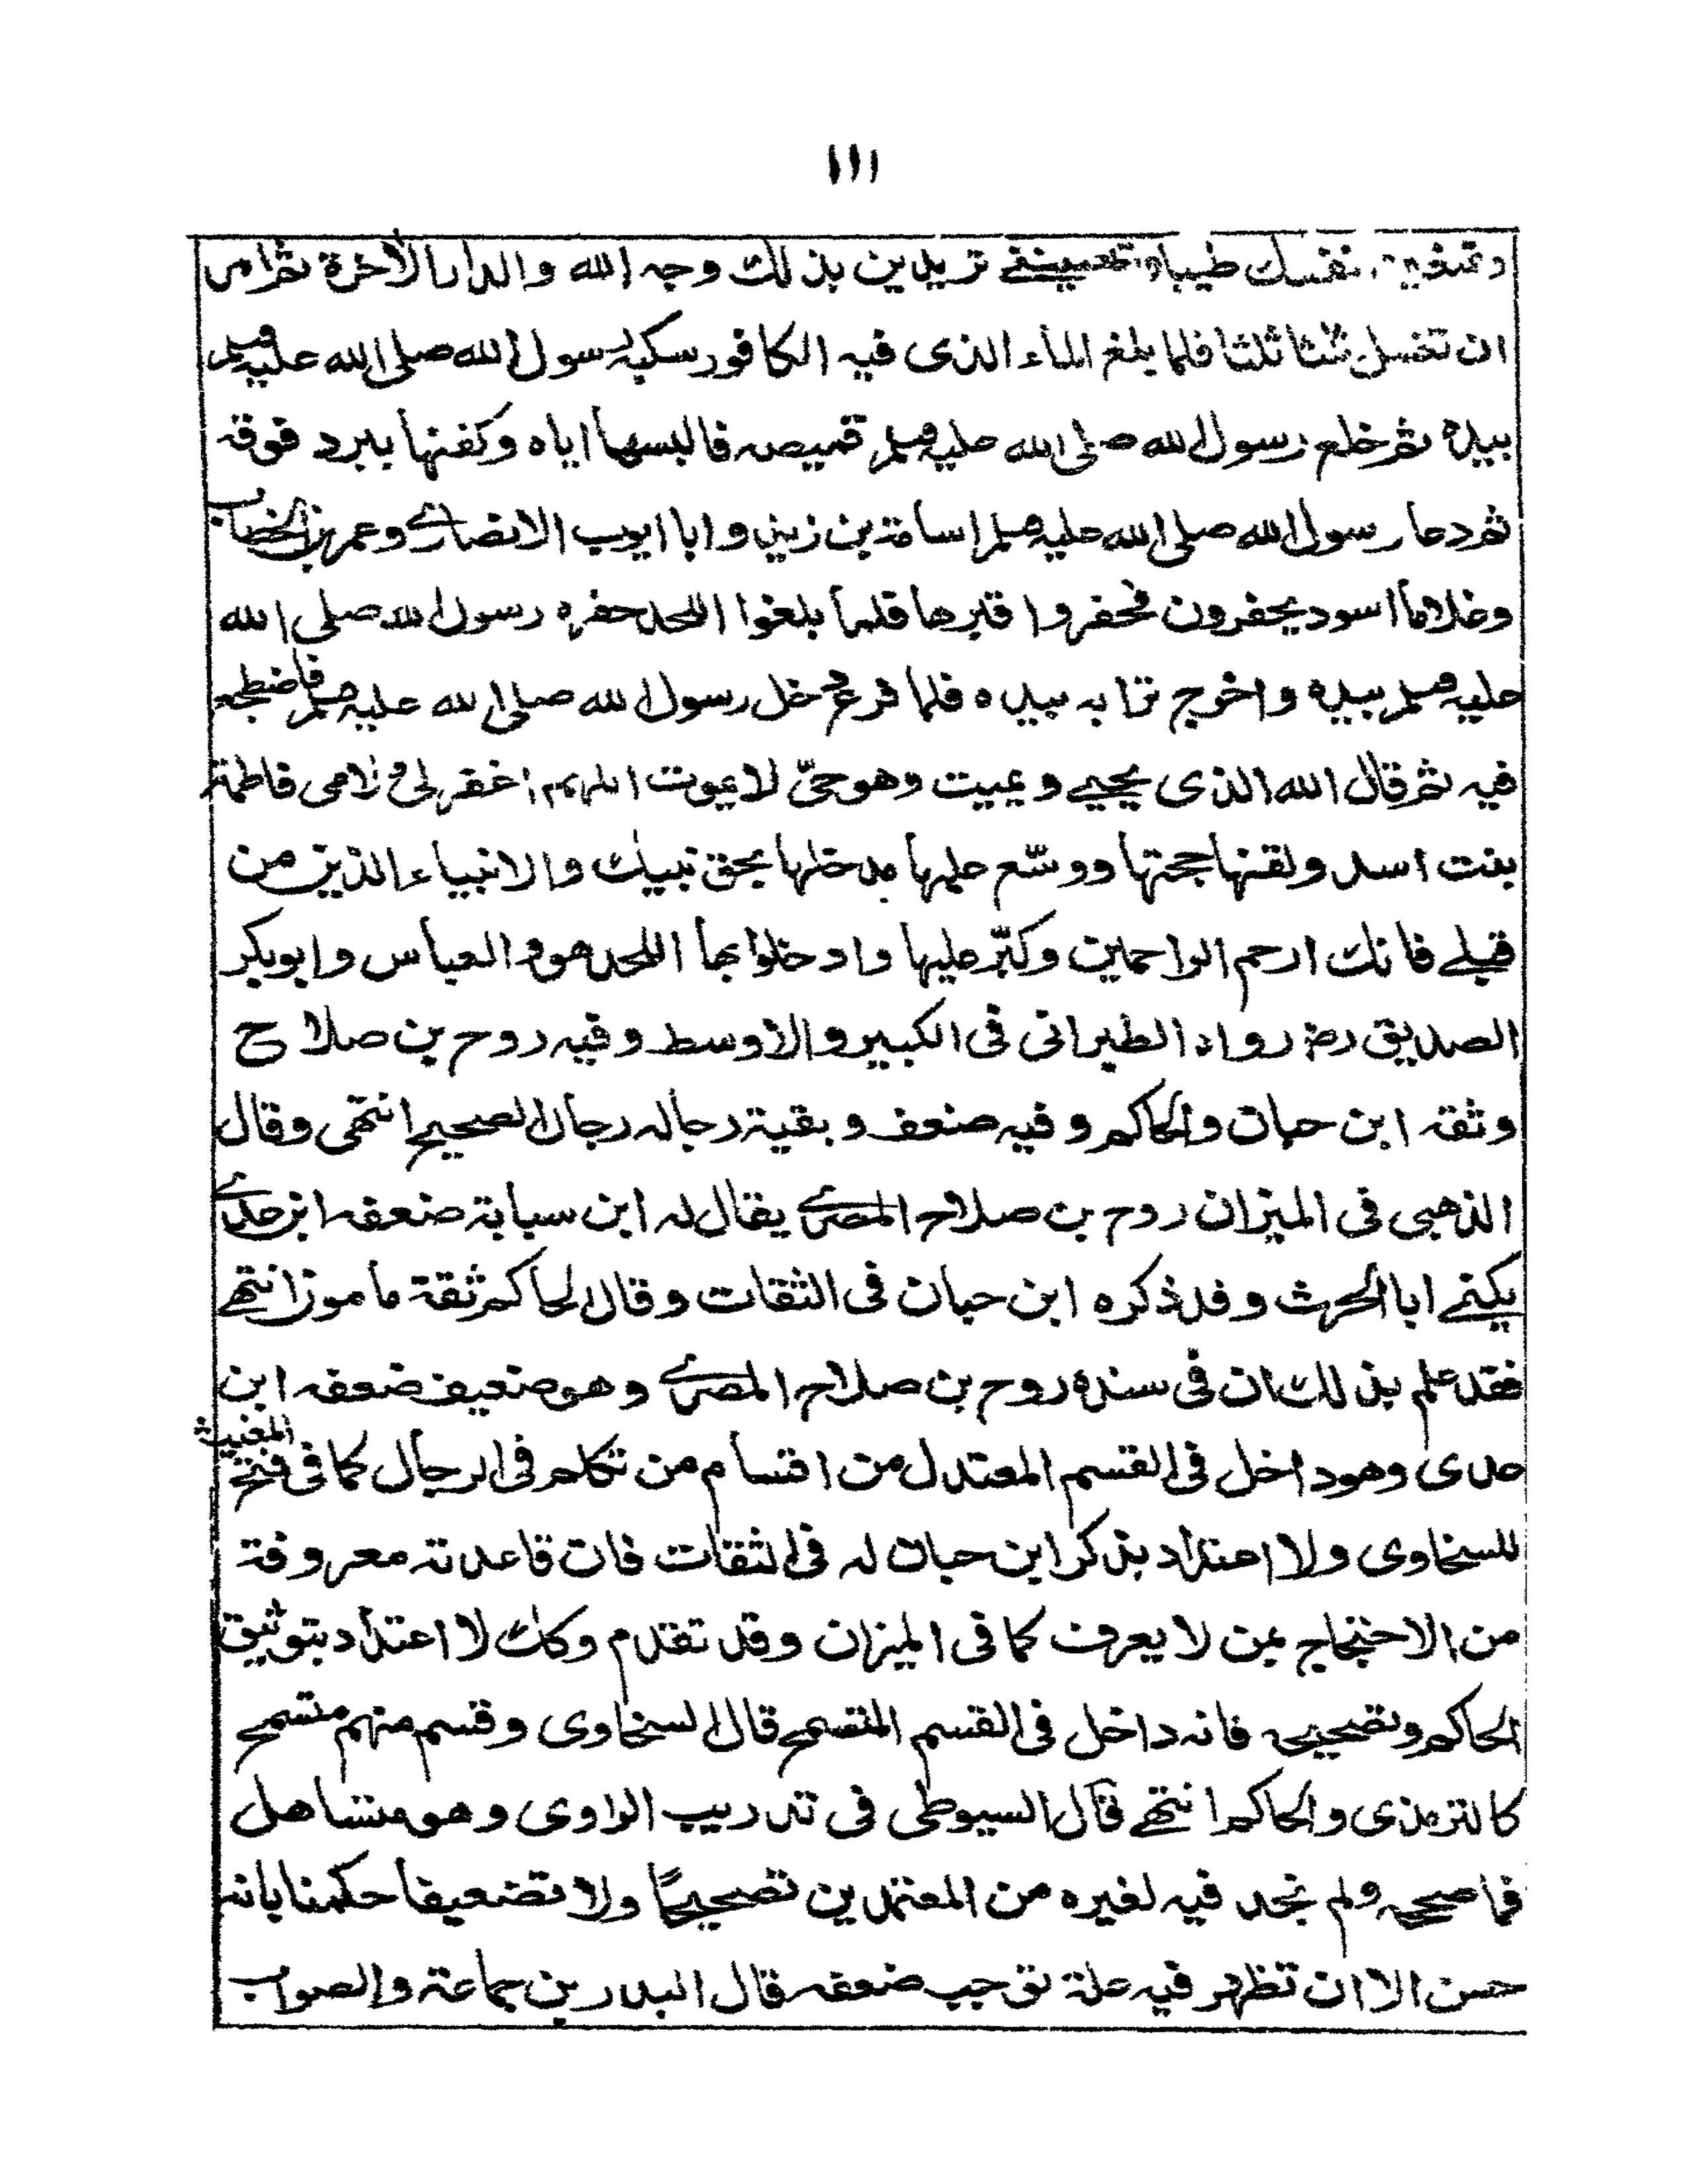 ١١١
وتمنعين نفسك طيبا وتطعمينى تريدين بذلك وجه الله والدار الآخرة ثم امر
ان تغسل ثلثا ثلثا فلما بلغ الماء الذى فيه الكافور سكبه رسول الله صلى الله عليه وسلم
بيده ثم خلع رسول الله صلى الله عليه وسلم قميصه فالبسها اياه وكفنها ببرد فوقه
ثم دعا رسول الله صلى الله عليه وسلم اسامة بن زيد وابا ايوب الانصارى وعمر بن الخطاب
وغلاما اسود يحفرون فحفروا قبرها فلما بلغوا اللحد حفره رسول الله صلى الله
عليه وسلم بيده واخرج ترابه بيده فلما فرغ دخل رسول الله صلى الله عليه وسلم فاضطجع
فيه ثم قال الله الذى يحيى ويميت وهو حىّ لا يموت اللهم اغفر لى ولامى فاطمة
بنت اسد ولقنها حجتها ووسّع عليها مدخلها بحق نبيك والانبياء الذين من
قبلى فانك ارحم الراحمين وكبّر عليها وادخلوا بها اللحد هو والعباس وابو بكر
الصديق رض رواه الطبرانى فى الكبير والاوسط وفيه روح بن صلاح
وثقه ابن حبان والحاكم وفيه ضعف وبقية رجاله رجال الصحيح انتهى وقال
الذهبى فى الميزان روح بن صلاح المصرى يقال له ابن سيابة ضعفه ابن عدى
يكنى ابا الحرث وقد ذكره ابن حبان فى الثقات وقال الحاكم ثقة مامون انتهى
فقد علم بذلك ان فى سنده روح بن صلاح المصرى وهو ضعيف ضعفه ابن
عدى وهو داخل فى القسم المعتدل من اقسام من تكلم فى الرجال كما فى فتح المغيث
للسخاوى ولا اعتداد بذكر ابن حبان له فى الثقات فان قاعدته معروفة
من الاحتجاج بمن لا يعرف كما فى الميزان وقد تقدم وكذلك لا اعتداد بتوثيق
الحاكم وتصحيحه فانه داخل فى القسم المتسمح قال السخاوى وقسم منهم متسمح
كالترمذى والحاكم انتهى قال السيوطى فى تدريب الراوى وهو متساهل
فما صححه ولم نجد فيه لغيره من المعتمدين تصحيحًا ولا تضعيفا حكمنا بانه
حسن الا ان تظهر فيه علة توجب ضعفه قال البدر بن جماعة والصواب